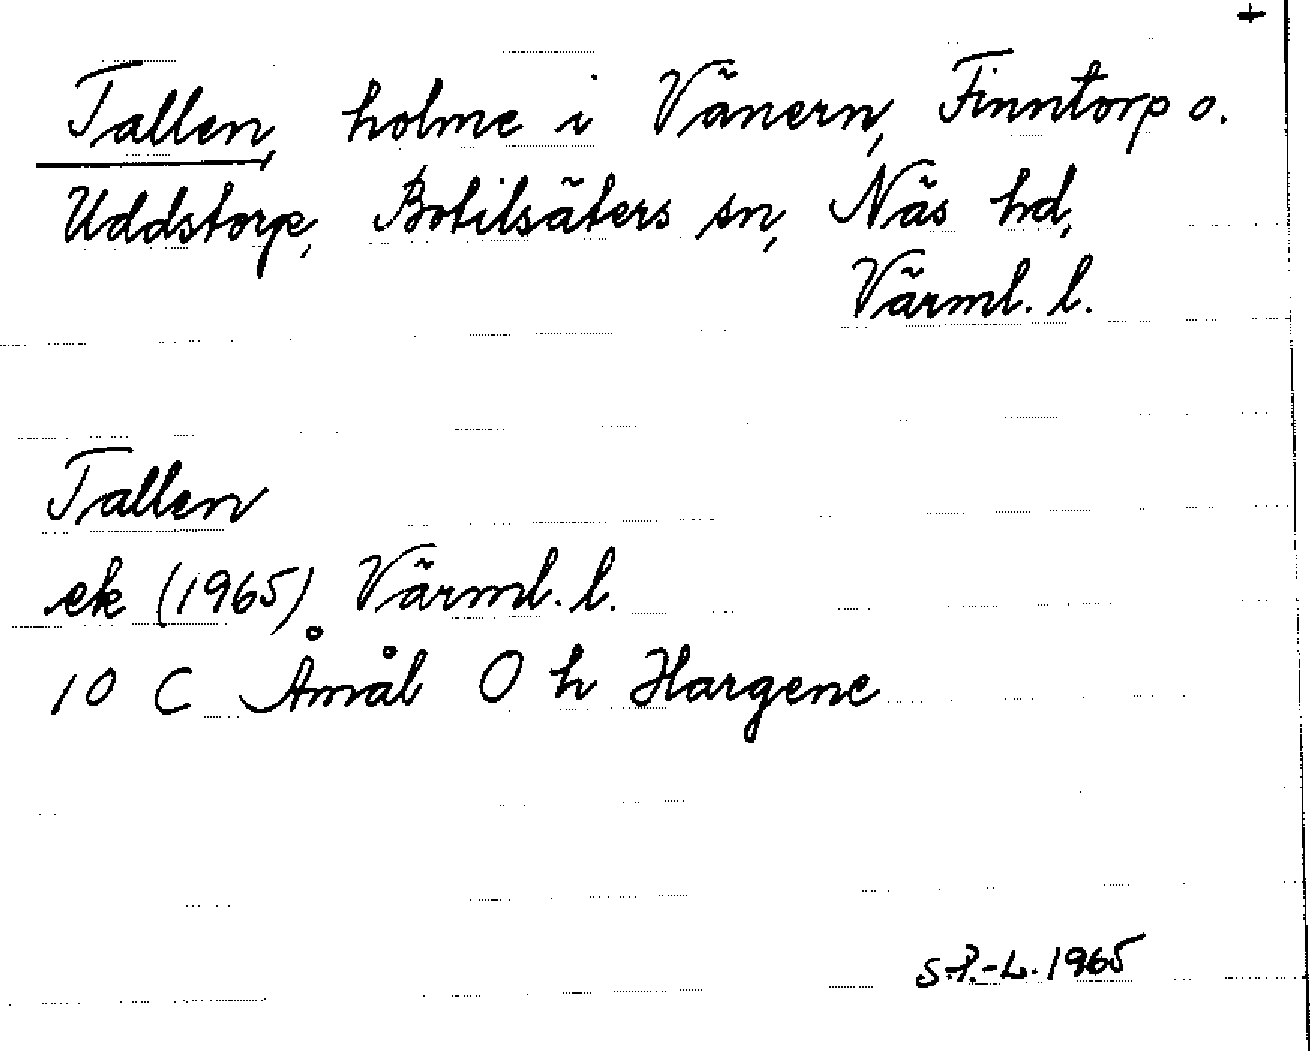 +
Tallen, holme i Vänern, Finntorp o.
Uddstorp, Botilsäters sn, Näs hd,
Värml. l.
Tallen
ek (1965) Värml. l.
10 C Åmål O h Hargene
S.P.-L. 1965